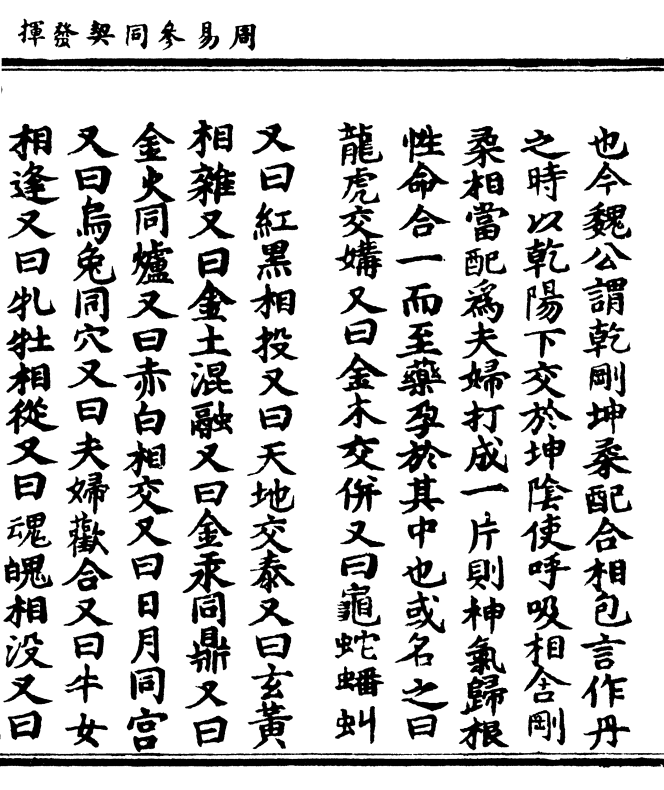 周易參同契發揮
也今魏公謂乾剛坤柔配合相包言作丹
之時以乾陽下交於坤陰使呼吸相含剛
柔相當配爲夫婦打成一片則神氣歸根
性命合一而至藥孕於其中也或名之曰
龍虎交媾又曰金木交併又曰龜蛇蟠虯
又曰紅黑相投又曰天地交泰又曰玄黃
相雜又曰金土混融又曰金汞同鼎又曰
金火同爐又曰赤白相交又曰日月同宮
又曰烏兔同穴又曰夫婦歡合又曰牛女
相逢又曰牝牡相從又曰魂魄相没又曰